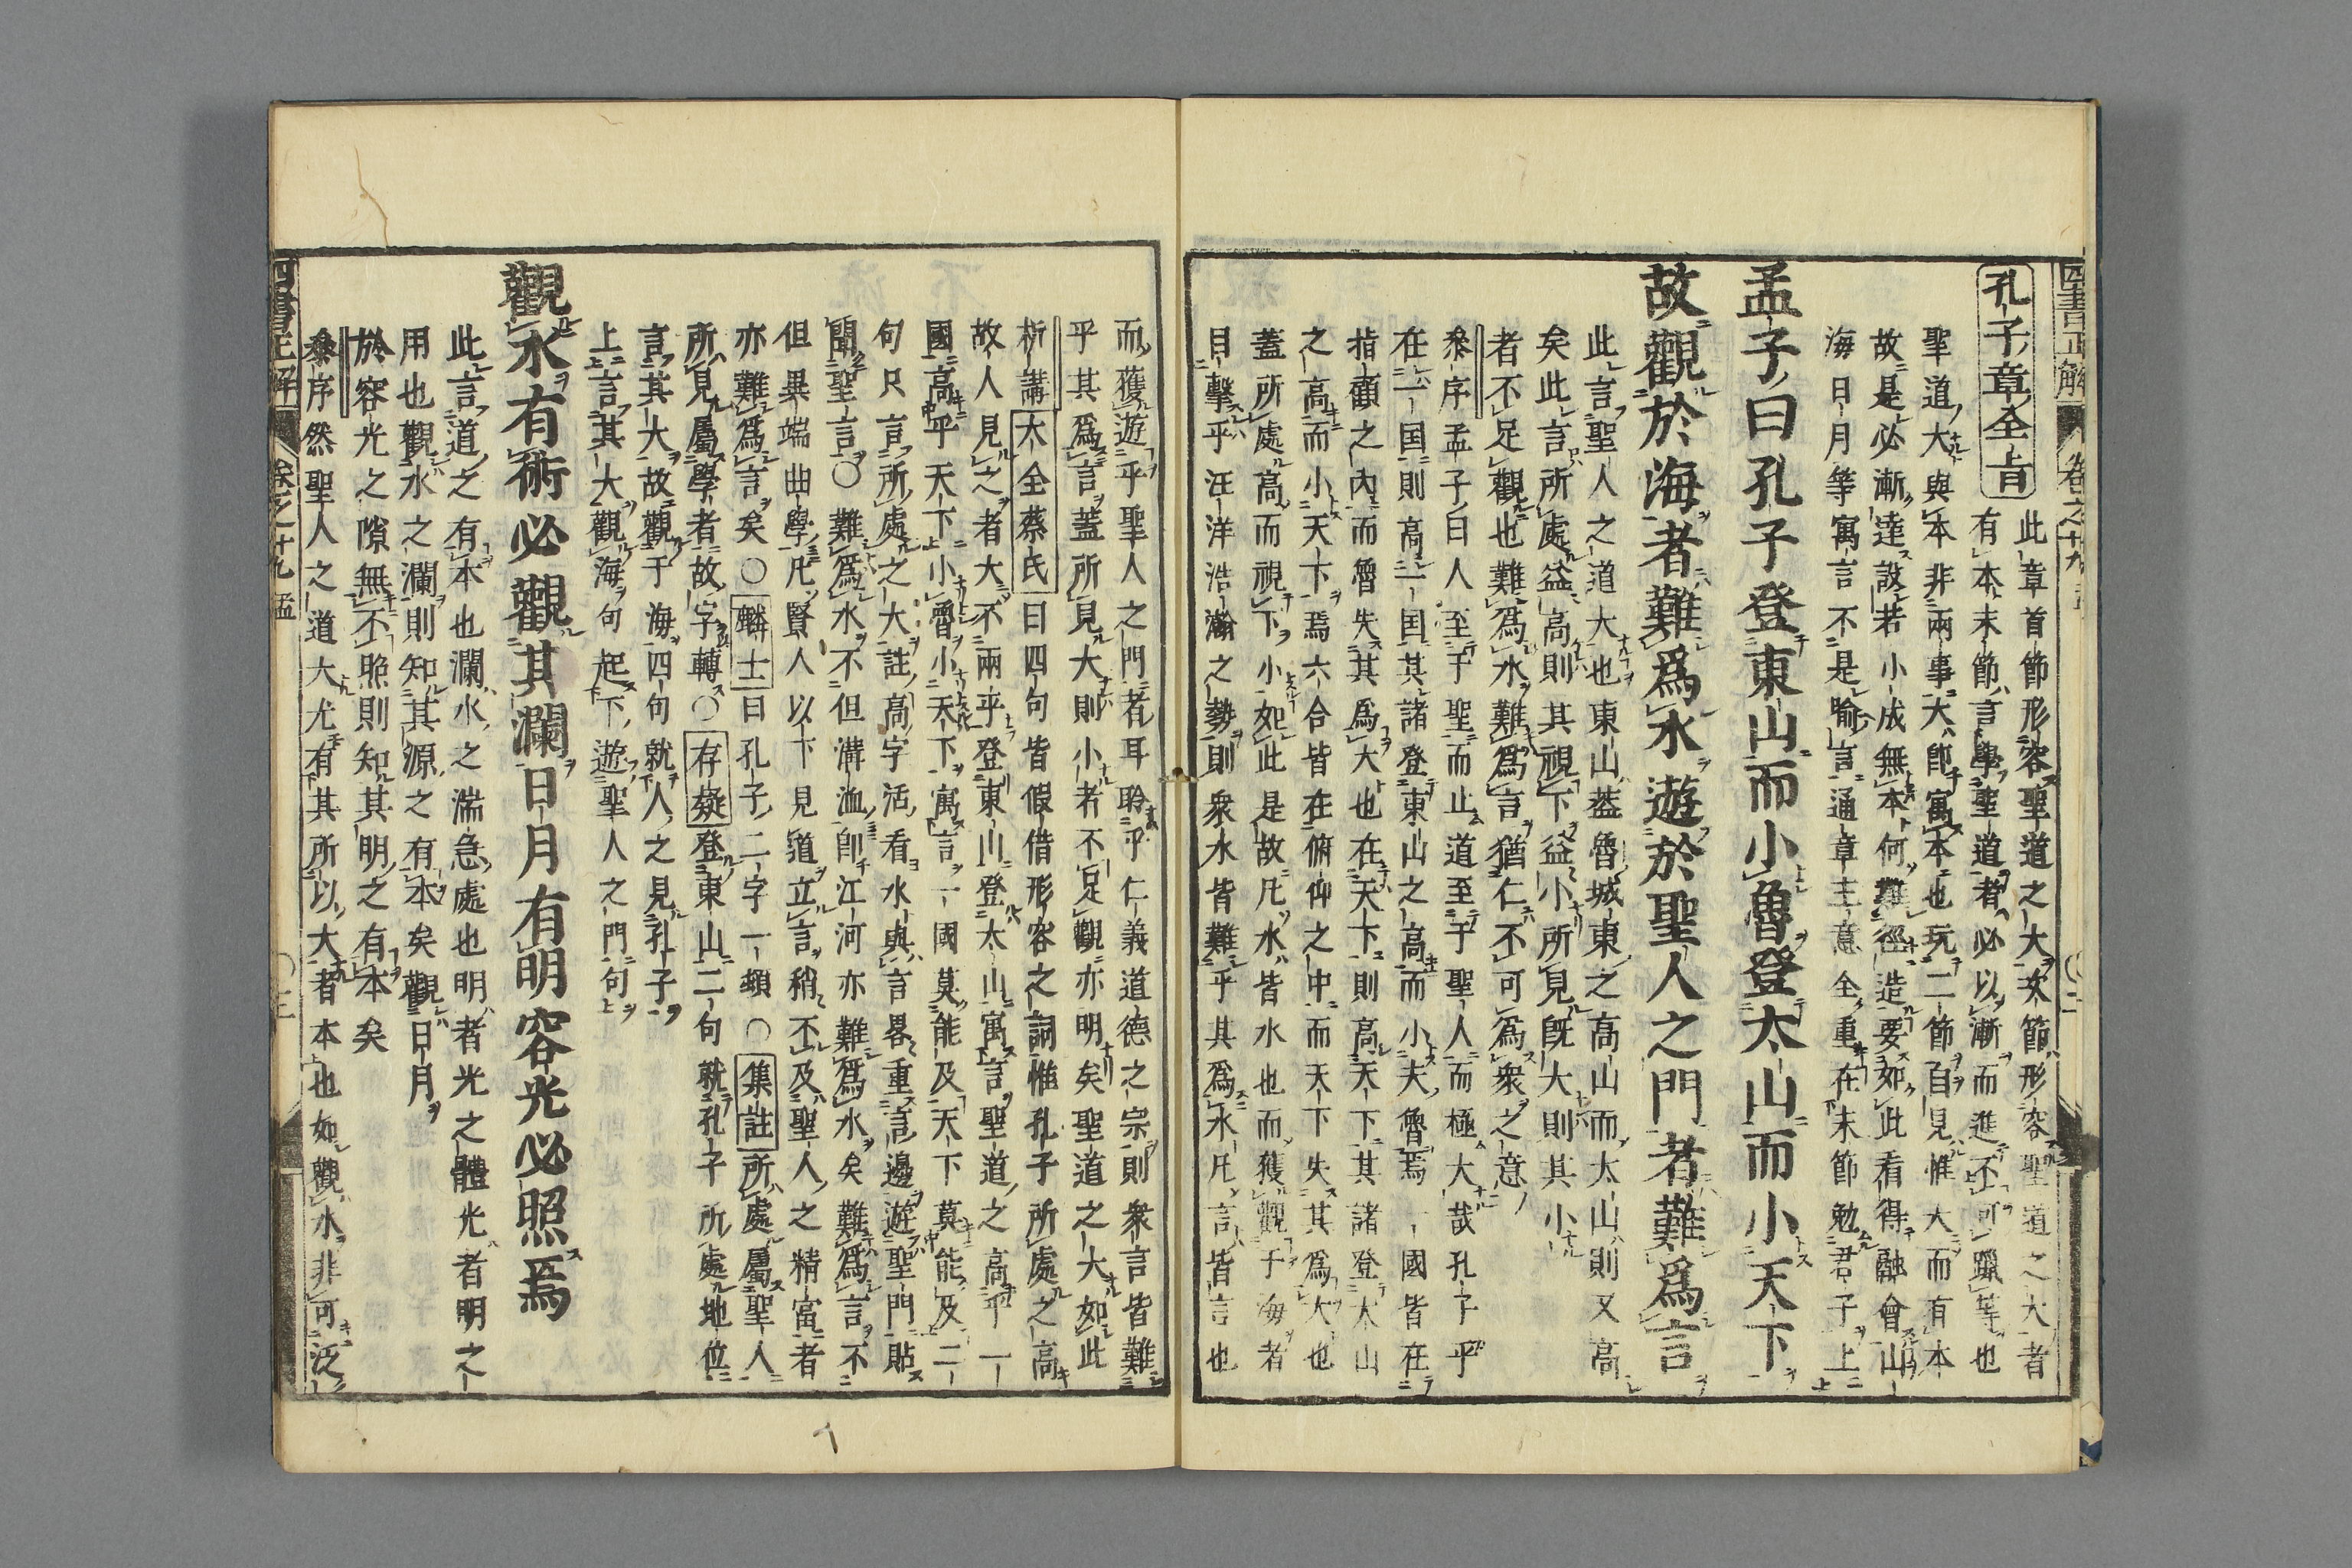 四書正解 卷之十九 孟
孔子章全旨
此章首節形容聖道之大次節形容聖道之大者
有本末節言學聖道者必以漸而進不可躐等也
聖道大與本非兩事大卽寓本也玩二節自見惟大而有本
故是必漸達設若小成無本何難徑造要如此看得融會山
海日月等寓言不是喻言通章主意全重在末節勉君子上
孟子曰孔子登東山而小魯登太山而小天下
故觀於海者難爲水遊於聖人之門者難爲言
此言聖人之道大也東山蓋魯城東之高山而太山則又高
矣此言所處益高則其視下益小所見旣大則其小
者不足觀也難爲水難爲言猶仁不可爲衆之意
叅序孟子曰人至于聖而止道至于聖人而極大哉孔子乎
在一国則高一国其諸登東山之高而小夫魯焉一國皆在
指顧之內而魯失其爲大也在天下則高天下其諸登太山
之高而小天下焉六合皆在俯仰之中而天下失其爲大也
蓋所處高而視下小如此是故凡水皆水也而獲觀于海者
目擊乎汪洋浩瀚之勢則衆水皆難乎其爲水凡言皆言也
而獲遊乎聖人之門者耳聆乎仁義道德之宗則衆言皆難
乎其爲言蓋所見大則小者不足觀亦明矣聖道之大如此
析講大全蔡氏曰四句皆假借形容之詞惟孔子所處之高
故人見之者大不兩平登東山登太山寓言聖道之高乎一
國高乎天下小魯小天下寓言一國莫能及天下莫能及二
句只言所處之大註高字活看水與言畧重言邊遊聖門貼
聞聖言○難爲水不但溝洫卽江河亦難爲水矣難爲言不
但異端曲學凡賢人以下見道立言稍不及聖人之精富者
亦難爲言矣○麟士曰孔子二字一頓○集註所處屬聖人
所見屬學者故字轉○存疑登東山二句就孔子所處地位
言其大故觀于海四句就人之見孔子
上言其大觀海句起下遊聖人之門句
觀水有術必觀其瀾日月有明容光必照焉
此言道之有本也瀾水之湍急處也明者光之體光者明之
用也觀水之瀾則知其源之有本矣觀日月
於容光之隙無不照則知其明之有本矣
叅序然聖人之道大尤有其所以大者本也如觀水非可泛
四書正解 卷之十九 孟